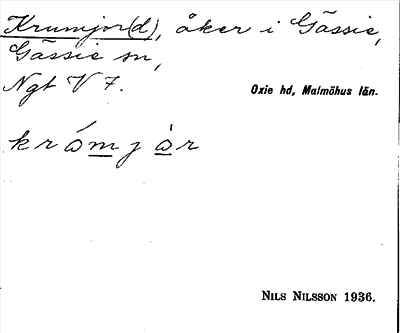 Krumjor(d), åker i Gässie,
Gässie sn,
Ngt V 7.
Oxie hd, Malmöhus län.
krómjàr
NILS NILSSON 1936.